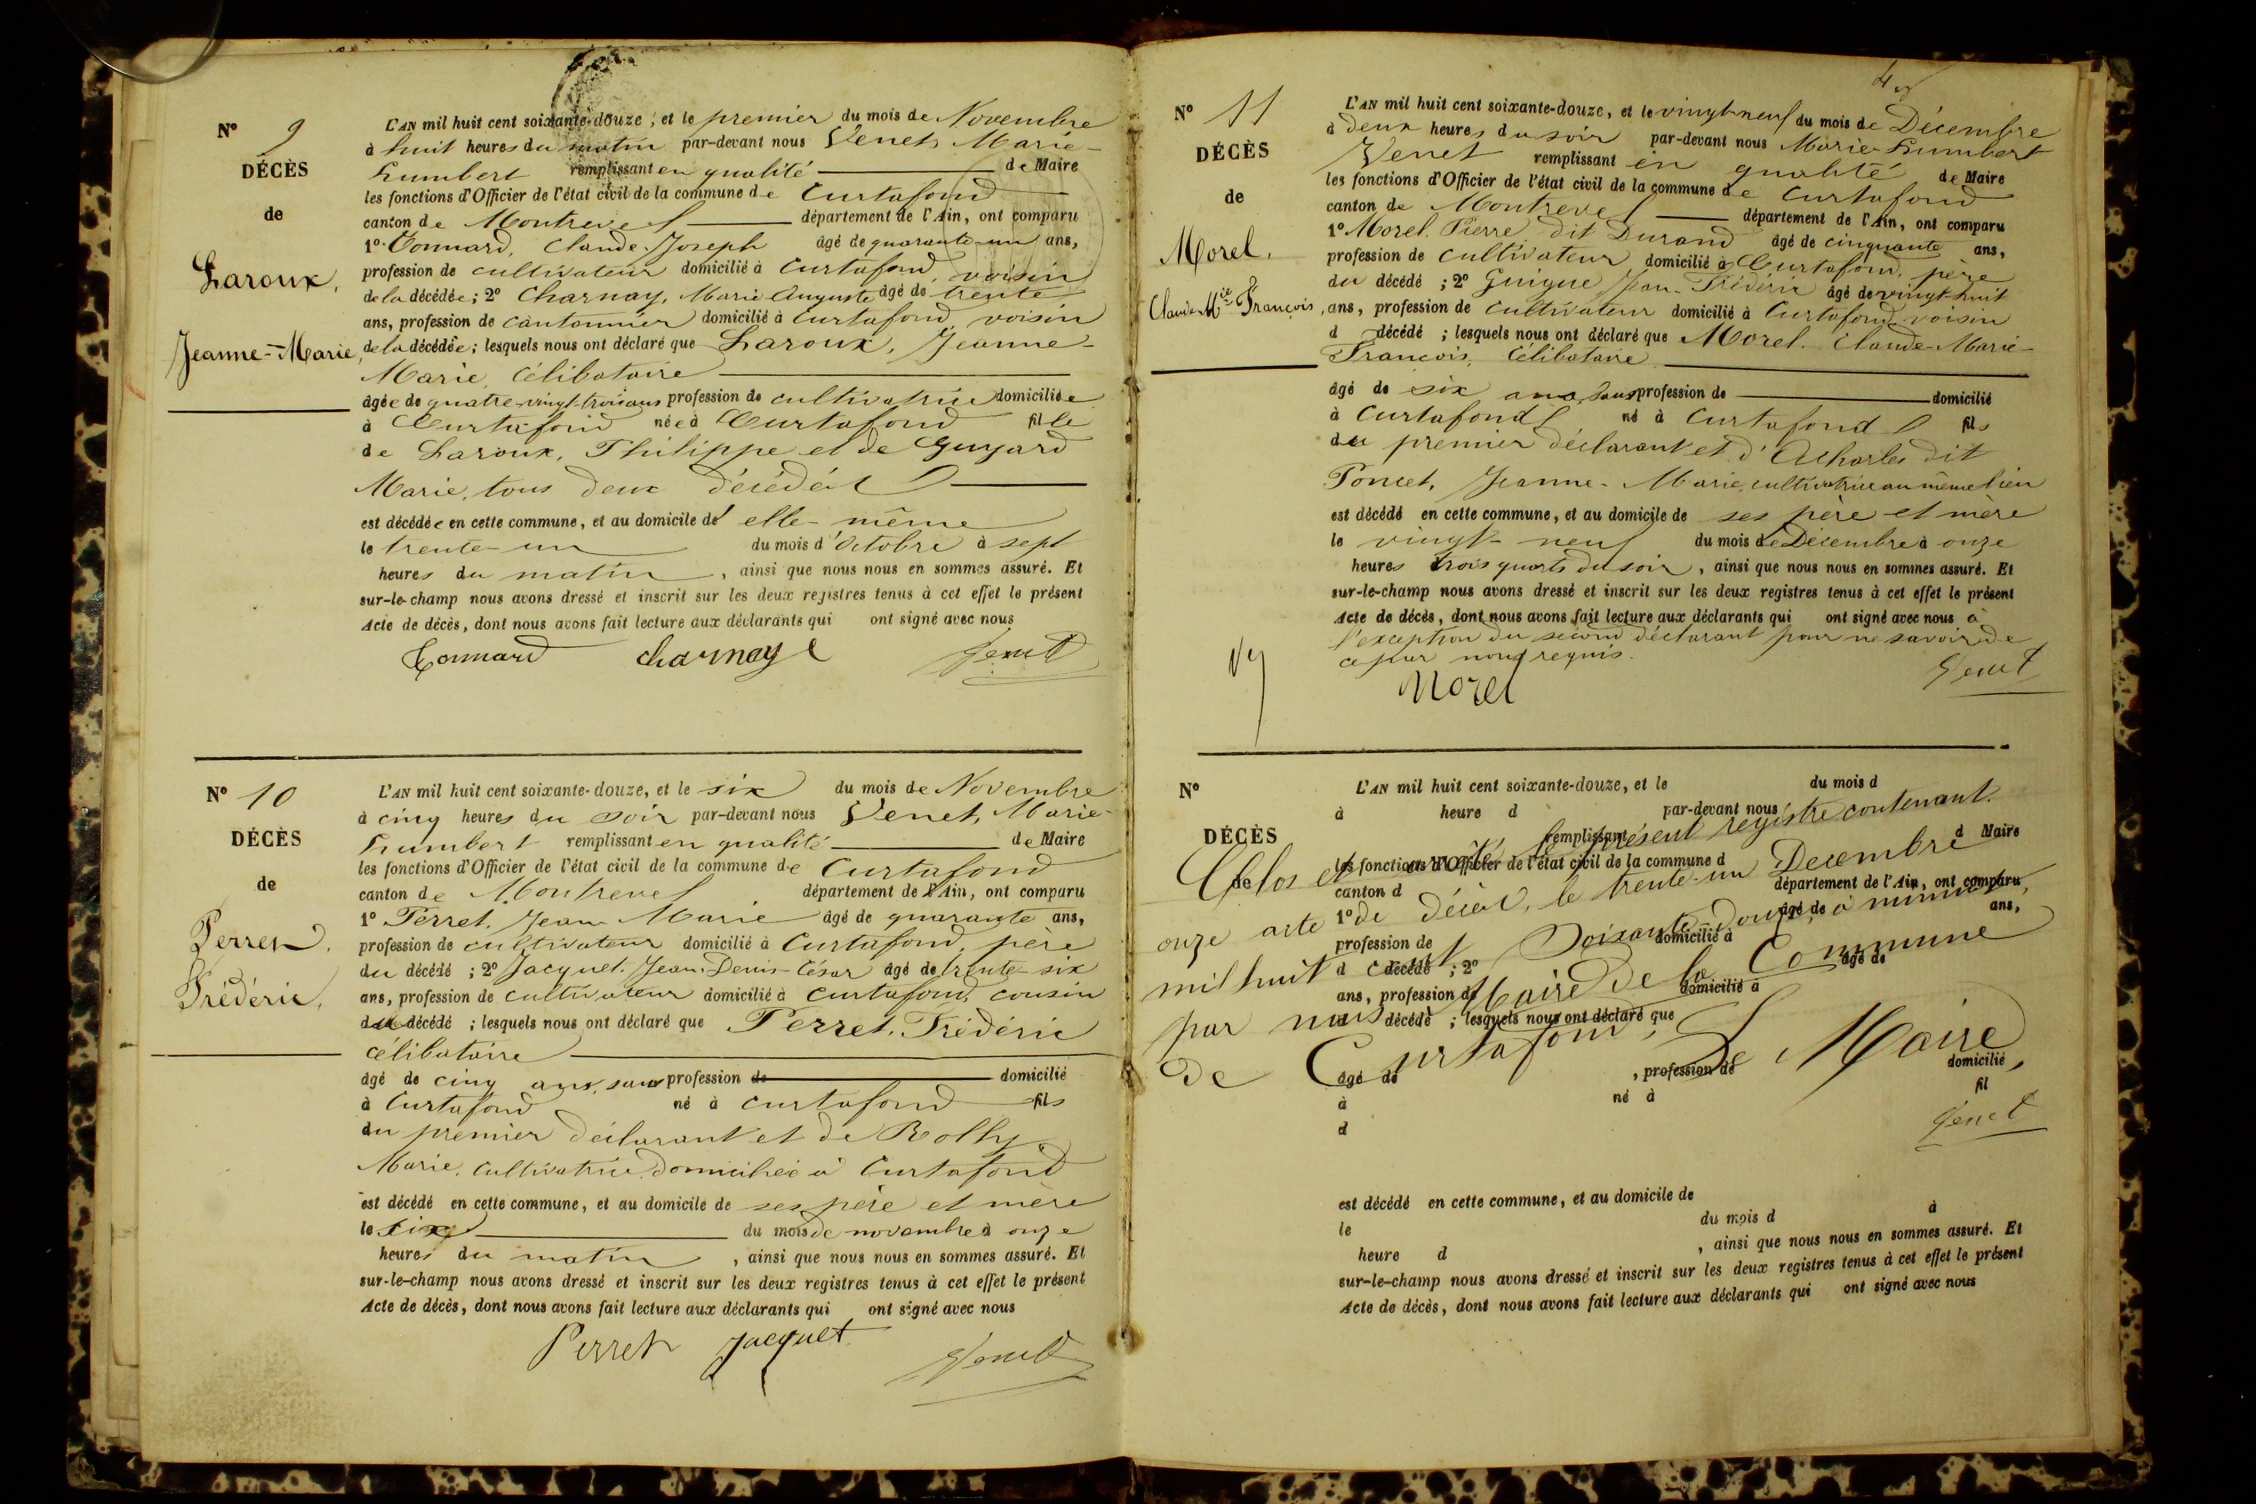 N° 9
DÉCÈS
de
Laroux,
Jeanne-Marie,
L'AN mil huit cent soixante-douze, et le premier du mois de Novembre
à huit heures du matin par-devant nous Venet, Marie-
humbert remplissant en qualité de Maire
les fonctions d'Officier de l'état civil de la commune de Curtafond
canton de Montrevel département de l'Ain, ont comparu
1° Tonnard, Claude-Joseph âgé de quarante-un ans,
profession de cultivateur domicilié à Curtafond, voisin
de la décédée; 2° Charnay, Marie Auguste âgé de trente
ans, profession de cantonnier domicilié à Curtafond, voisin
de la décédée; lesquels nous ont déclaré que Laroux, Jeanne-
Marie, célibataire
âgée de quatre-vingt-trois ans profession de cultivatrice domiciliée
à Curtafond née à Curtafond fille
de Laroux, Philippe et de Guyard
Marie, tous deux décédés
est décédée en cette commune, et au domicile d' elle-même
le trente-un du mois d'Octobre à sept
heures du matin, ainsi que nous nous en sommes assuré. Et
sur-le-champ nous avons dressé et inscrit sur les deux registres tenus à cet effet le présent
Acte de décès, dont nous avons fait lecture aux déclarants qui ont signé avec nous
Tonnard Charnay Venet
N° 10
DÉCÈS
de
Perret,
Frédéric,
L'AN mil huit cent soixante-douze, et le six du mois de Novembre
à cinq heures du soir par-devant nous Venet, Marie-
humbert remplissant en qualité de Maire
les fonctions d'Officier de l'état civil de la commune de Curtafond
canton de Montrevel département de l'Ain, ont comparu
1° Perret, Jean Marie âgé de quarante ans,
profession de cultivateur domicilié à Curtafond, père
du décédé; 2° Jacquet, Jean-Denis-César âgé de trente-six
ans, profession de cultivateur domicilié à Curtafond, cousin
du décédé; lesquels nous ont déclaré que Perret, Frédéric
célibataire
âgé de cinq ans, sans profession de domicilié
à Curtafond né à Curtafond fils
du premier déclarant et de Rolly
Marie, cultivatrice domiciliée à Curtafond
est décédé en cette commune, et au domicile de ses père et mère
le six du mois de novembre à onze
heures du matin, ainsi que nous nous en sommes assuré. Et
sur-le-champ nous avons dressé et inscrit sur les deux registres tenus à cet effet le présent
Acte de décès, dont nous avons fait lecture aux déclarants qui ont signé avec nous
Perret Jacquet Venet
N° 11
DÉCÈS
de
Morel,
Claude Mie François,
L'AN mil huit cent soixante-douze, et le vingt-neuf du mois de Décembre
à deux heures du soir par-devant nous Marie-humbert
Venet remplissant en qualité de Maire
les fonctions d'Officier de l'état civil de la commune de Curtafond
canton de Montrevel département de l'Ain, ont comparu
1° Morel, Pierre dit Durand âgé de cinquante ans,
profession de cultivateur domicilié à Curtafond, père
du décédé; 2° Guigue Jean-Frédéric âgé de vingt-huit
ans, profession de cultivateur domicilié à Curtafond voisin
d décédé; lesquels nous ont déclaré que Morel, Claude-Marie-
François, célibataire
âgé de six ans, sans profession de domicilié
à Curtafond né à Curtafond fils
du premier déclarant et d'Acharles dit
Poncet, Jeanne-Marie, cultivatrice au même lieu
est décédé en cette commune, et au domicile de ses père et mère
le vingt-neuf du mois de Décembre à onze
heures trois quarts du soir, ainsi que nous nous en sommes assuré. Et
sur-le-champ nous avons dressé et inscrit sur les deux registres tenus à cet effet le présent
Acte de décès, dont nous avons fait lecture aux déclarants qui ont signé avec nous à
l'exception du second déclarant pour ne savoir de
ce par nous requis.
Morel Venet
N°
DÉCÈS
de
L'AN mil huit cent soixante-douze, et le du mois d
à heure d par-devant nous
remplissant d Maire
les fonctions d'Officier de l'état civil de la commune d
canton d département de l'Ain, ont comparu
1° âgé de ans,
profession de domicilié à
d décédé; 2° âgé de
ans, profession de domicilié à
d décédé; lesquels nous ont déclaré que
âgé de, profession de domicilié
à né à fil
d
Clos et arrêté le présent registre contenant
onze acte de décès, le trente-un Décembre
mil huit cent soixante-douze, à minuit,
par nous Maire de la Commune
de Curtafond,
Le Maire,
Venet
est décédé en cette commune, et au domicile de
le du mois d à
heure d, ainsi que nous nous en sommes assuré. Et
sur-le-champ nous avons dressé et inscrit sur les deux registres tenus à cet effet le présent
Acte de décès, dont nous avons fait lecture aux déclarants qui ont signé avec nous